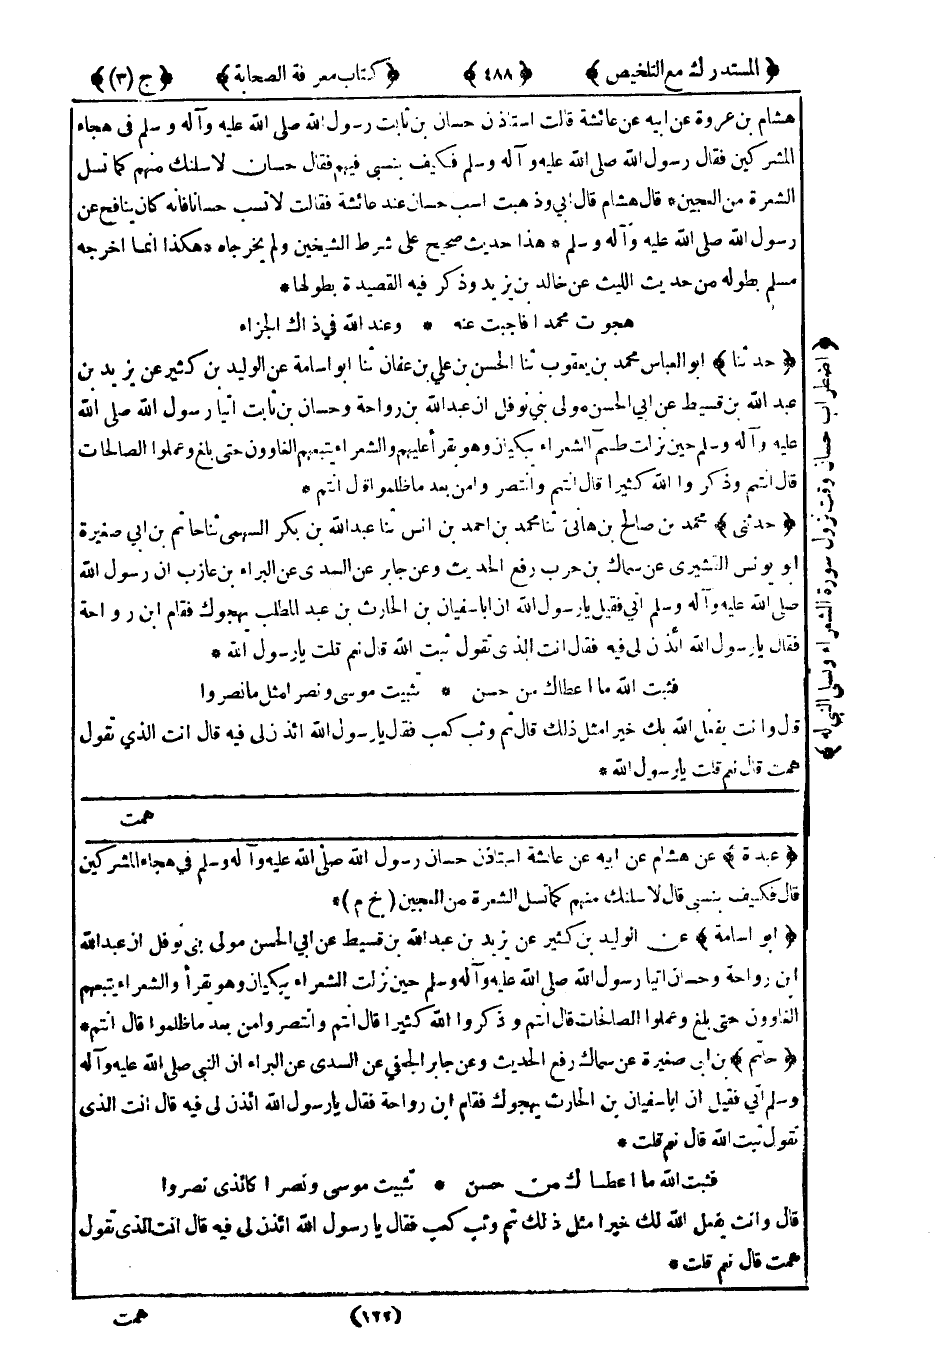 ﴿ المستدرك مع التلخيص ﴾ ﴿ ٤٨٨ ﴾ ﴿ كتاب معرفة الصحابة ﴾ ﴿ ج (٣) ﴾
هشام بن عروة عن ابيه عن عائشة قالت استاذن حسان بن ثابت رسول الله صلى الله عليه وآله وسلم فى هجاء
المشركين فقال رسول الله صلى الله عليه وآله وسلم فكيف بنسبي فيهم فقال حسان لاسلنك منهم كما تسل
الشعرة من العجين * قال هشام قال ابي وذهبت اسب حسان عند عائشة فقالت لا تسب حسانا فانه كان ينافح عن
رسول الله صلى الله عليه وآله وسلم * هذا حديث صحيح على شرط الشيخين ولم يخرجاه * هكذا انما اخرجه
مسلم بطوله من حديث الليث عن خالد بن يزيد وذكر فيه القصيدة بطولها *
هجوت محمدا فاجبت عنه * وعند الله في ذاك الجزاء
﴿ حدثنا ﴾ ابو العباس محمد بن يعقوب ثنا الحسن بن علي بن عفان ثنا ابو اسامة عن الوليد بن كثير عن يزيد بن
عبد الله بن قسيط عن ابي الحسن مولى بني نوفل ان عبدالله بن رواحة وحسان بن ثابت اتيا رسول الله صلى الله
عليه وآله وسلم حين نزلت طسم الشعراء يبكيان وهو يقرأ عليهم والشعراء يتبعهم الغاوون حتى بلغ وعملوا الصالحات
قال انتم وذكروا الله كثيرا قال انتم وانتصروا من بعد ما ظلموا قال انتم *
﴿ حدثني ﴾ محمد بن صالح بن هانئ ثنا محمد بن احمد بن انس ثنا عبدالله بن بكر السهمي ثنا حاتم بن ابي صغيرة
ابو يونس القشيرى عن سماك بن حرب رفع الحديث وعن جابر عن السدى عن البراء بن عازب ان رسول الله
صلى الله عليه وآله وسلم اتي فقيل يا رسول الله ان اباسفيان بن الحارث بن عبد المطلب يهجوك فقام ابن رواحة
فقال يا رسول الله أئذن لى فيه فقال انت الذى تقول ثبت الله قال نعم قلت يا رسول الله *
فثبت الله ما اعطاك من حسن * تثبيت موسى ونصرا مثل ما نصروا
قال وانت يفعل الله بك خيرا مثل ذلك قال ثم وثب كعب فقال يا رسول الله ائذن لى فيه قال انت الذي تقول
همت قال نعم قلت يا رسول الله *
همت
﴿ اضطراب حسان وقت نزول سورة الشعراء وتسلى النبي له ﴾
﴿ عبدة ﴾ عن هشام عن ابيه عن عائشة استاذن حسان رسول الله صلى الله عليه وآله وسلم في هجاء المشركين
قال فكيف بنسبي قال لاسلنك منهم كما تسل الشعرة من العجين (خ م) *
﴿ ابو اسامة ﴾ عن الوليد بن كثير عن يزيد بن عبدالله بن قسيط عن ابي الحسن مولى بنى نوفل ان عبدالله
ابن رواحة وحسان اتيا رسول الله صلى الله عليه وآله وسلم حين نزلت الشعراء يبكيان وهو يقرأ والشعراء يتبعهم
الغاوون حتى بلغ وعملوا الصالحات قال انتم وذكروا الله كثيرا قال انتم وانتصروا من بعد ما ظلموا قال انتم *
﴿ حاتم ﴾ بن ابى صغيرة عن سماك رفع الحديث وعن جابر الجعفي عن السدى عن البراء ان النبي صلى الله عليه وآله
وسلم اتي فقيل ان اباسفيان بن الحارث يهجوك فقام ابن رواحة فقال يا رسول الله ائذن لى فيه قال انت الذى
تقول ثبت الله قال نعم قلت *
فثبت الله ما اعطاك من حسن * تثبيت موسى ونصرا كالذى نصروا
قال وانت يفعل الله لك خيرا مثل ذلك ثم وثب كعب فقال يا رسول الله ائذن لى فيه قال انت الذى تقول
همت قال نعم قلت *
(١٢٢) همت